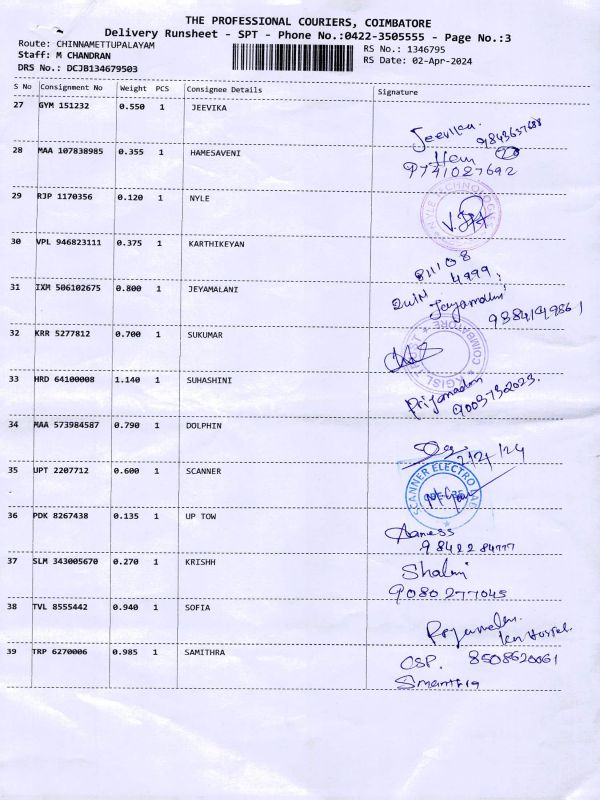 THE PROFESSIONAL COURIERS, COIMBATORE
Delivery Runsheet - SPT - Phone No.:0422-3505555 - Page No.:3
Route: CHINNAMETTUPALAYAM RS No.: 1346795
Staff: M CHANDRAN RS Date: 02-Apr-2024
DRS No.: DCJB134679503
S No Consignment No Weight PCS Consignee Details Signature
27 GYM 151232 0.550 1 JEEVIKA
28 MAA 107838985 0.355 1 HAMESAVENI
9741027692
29 RJP 1170356 0.120 1 NYLE
NYLE TECHNOLOGIES
30 VPL 946823111 0.375 1 KARTHIKEYAN
31 IXM 506102675 0.800 1 JEYAMALANI
32 KRR 5277812 0.700 1 SUKUMAR
COIMBATORE
33 HRD 64100008 1.140 1 SUHASHINI
9003732023.
34 MAA 573984587 0.790 1 DOLPHIN
35 UPT 2207712 0.600 1 SCANNER
SCANNER ELECTRO
36 PDK 8267438 0.135 1 UP TOW
37 SLM 343005670 0.270 1 KRISHH
9080277045
38 TVL 8555442 0.940 1 SOFIA
39 TRP 6270006 0.985 1 SAMITHRA
8508620061